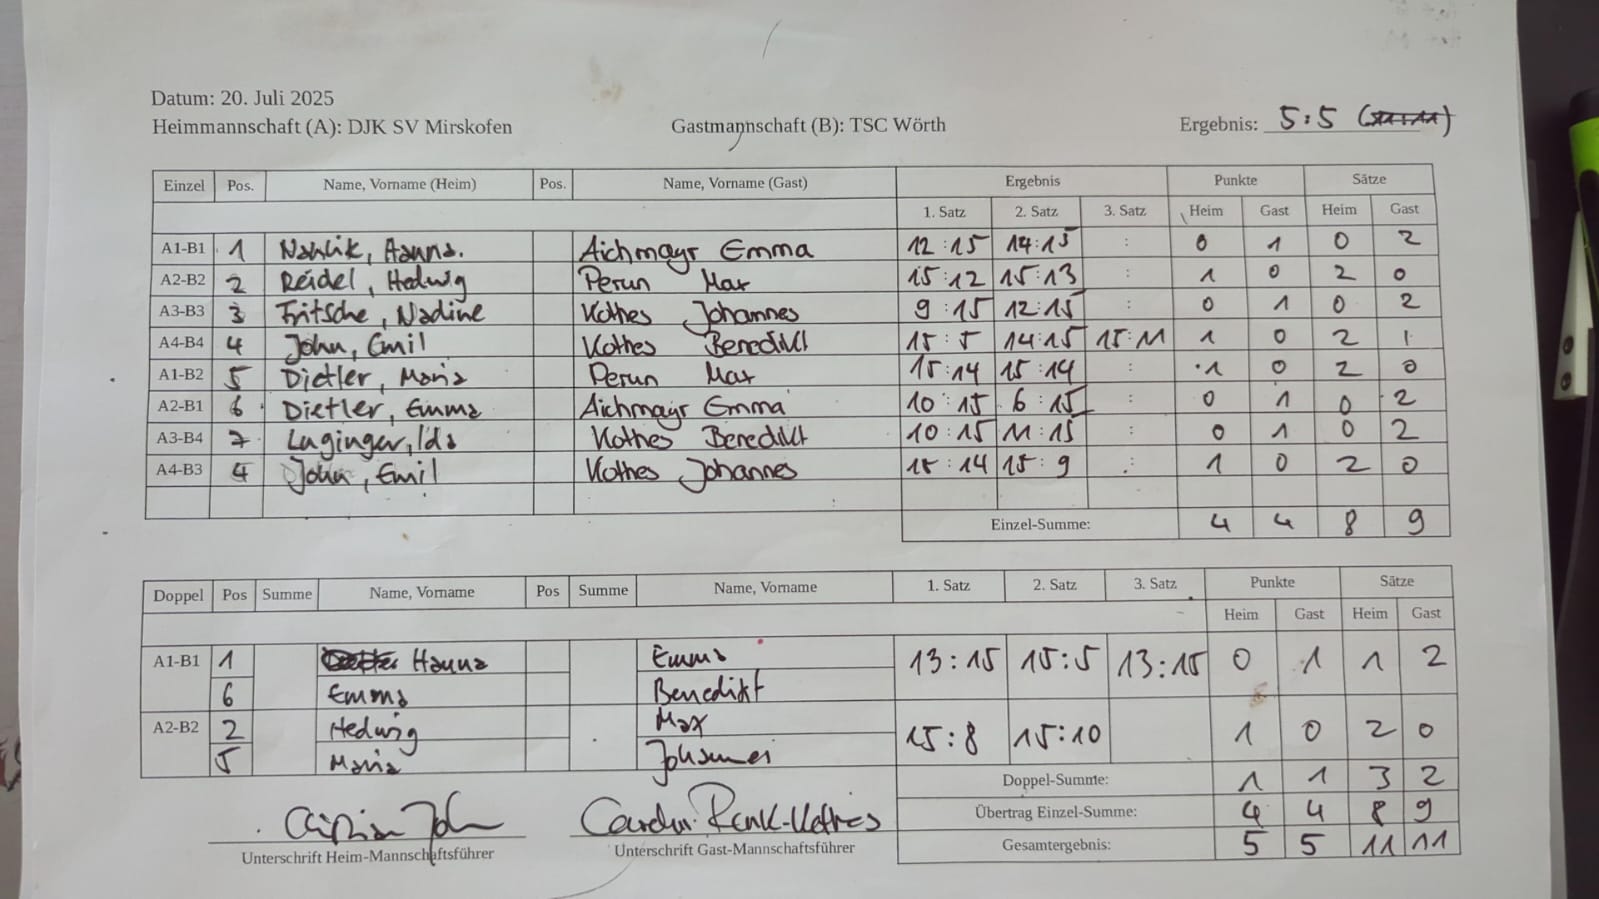 Datum: 20. Juli 2025
Heimmannschaft (A): DJK SV Mirskofen Gastmannschaft (B): TSC Wörth Ergebnis: 5:5
Einzel Pos. Name, Vorname (Heim) Pos. Name, Vorname (Gast) Ergebnis Punkte Sätze
1. Satz 2. Satz 3. Satz Heim Gast Heim Gast
A1-B1 1 Hanna. Aichmayr Emma 12:15 14:15 : 0 1 0 2
A2-B2 2 Reidel, Hedwig Perun Max 15:12 15:13 1 0 2 0
A3-B3 3 Fritsche, Nadine Kothes Johannes 9:15 12:15 : 0 1 0 2
A4-B4 4 John, Emil Kothes Benedikt 15:5 14:15 15:11 1 0 2 1
A1-B2 5 Dietler, Maria Perun Max 15:14 15:14 : 1 0 2 0
A2-B1 6 Dietler, Emma Aichmayr Emma 10:15 6:15 : 0 1 0 2
A3-B4 7 Luginger, Ida Kothes Benedikt 10:15 11:15 : 0 1 0 2
A4-B3 4 John, Emil Kothes Johannes 15:14 15:9 : 1 0 2 0
Einzel-Summe: 4 4 8 9
Doppel Pos Summe Name, Vorname Pos Summe Name, Vorname 1. Satz 2. Satz 3. Satz Punkte Sätze
Heim Gast Heim Gast
A1-B1 1 Hanna Emma 13:15 15:5 13:15 0 1 1 2
6 Emma Benedikt
A2-B2 2 Hedwig Max 15:8 15:10 1 0 2 0
5 Maria Johannes
Doppel-Summe: 1 1 3 2
Übertrag Einzel-Summe: 4 4 8 9
Gesamtergebnis: 5 5 11 11
Unterschrift Heim-Mannschaftsführer Unterschrift Gast-Mannschaftsführer